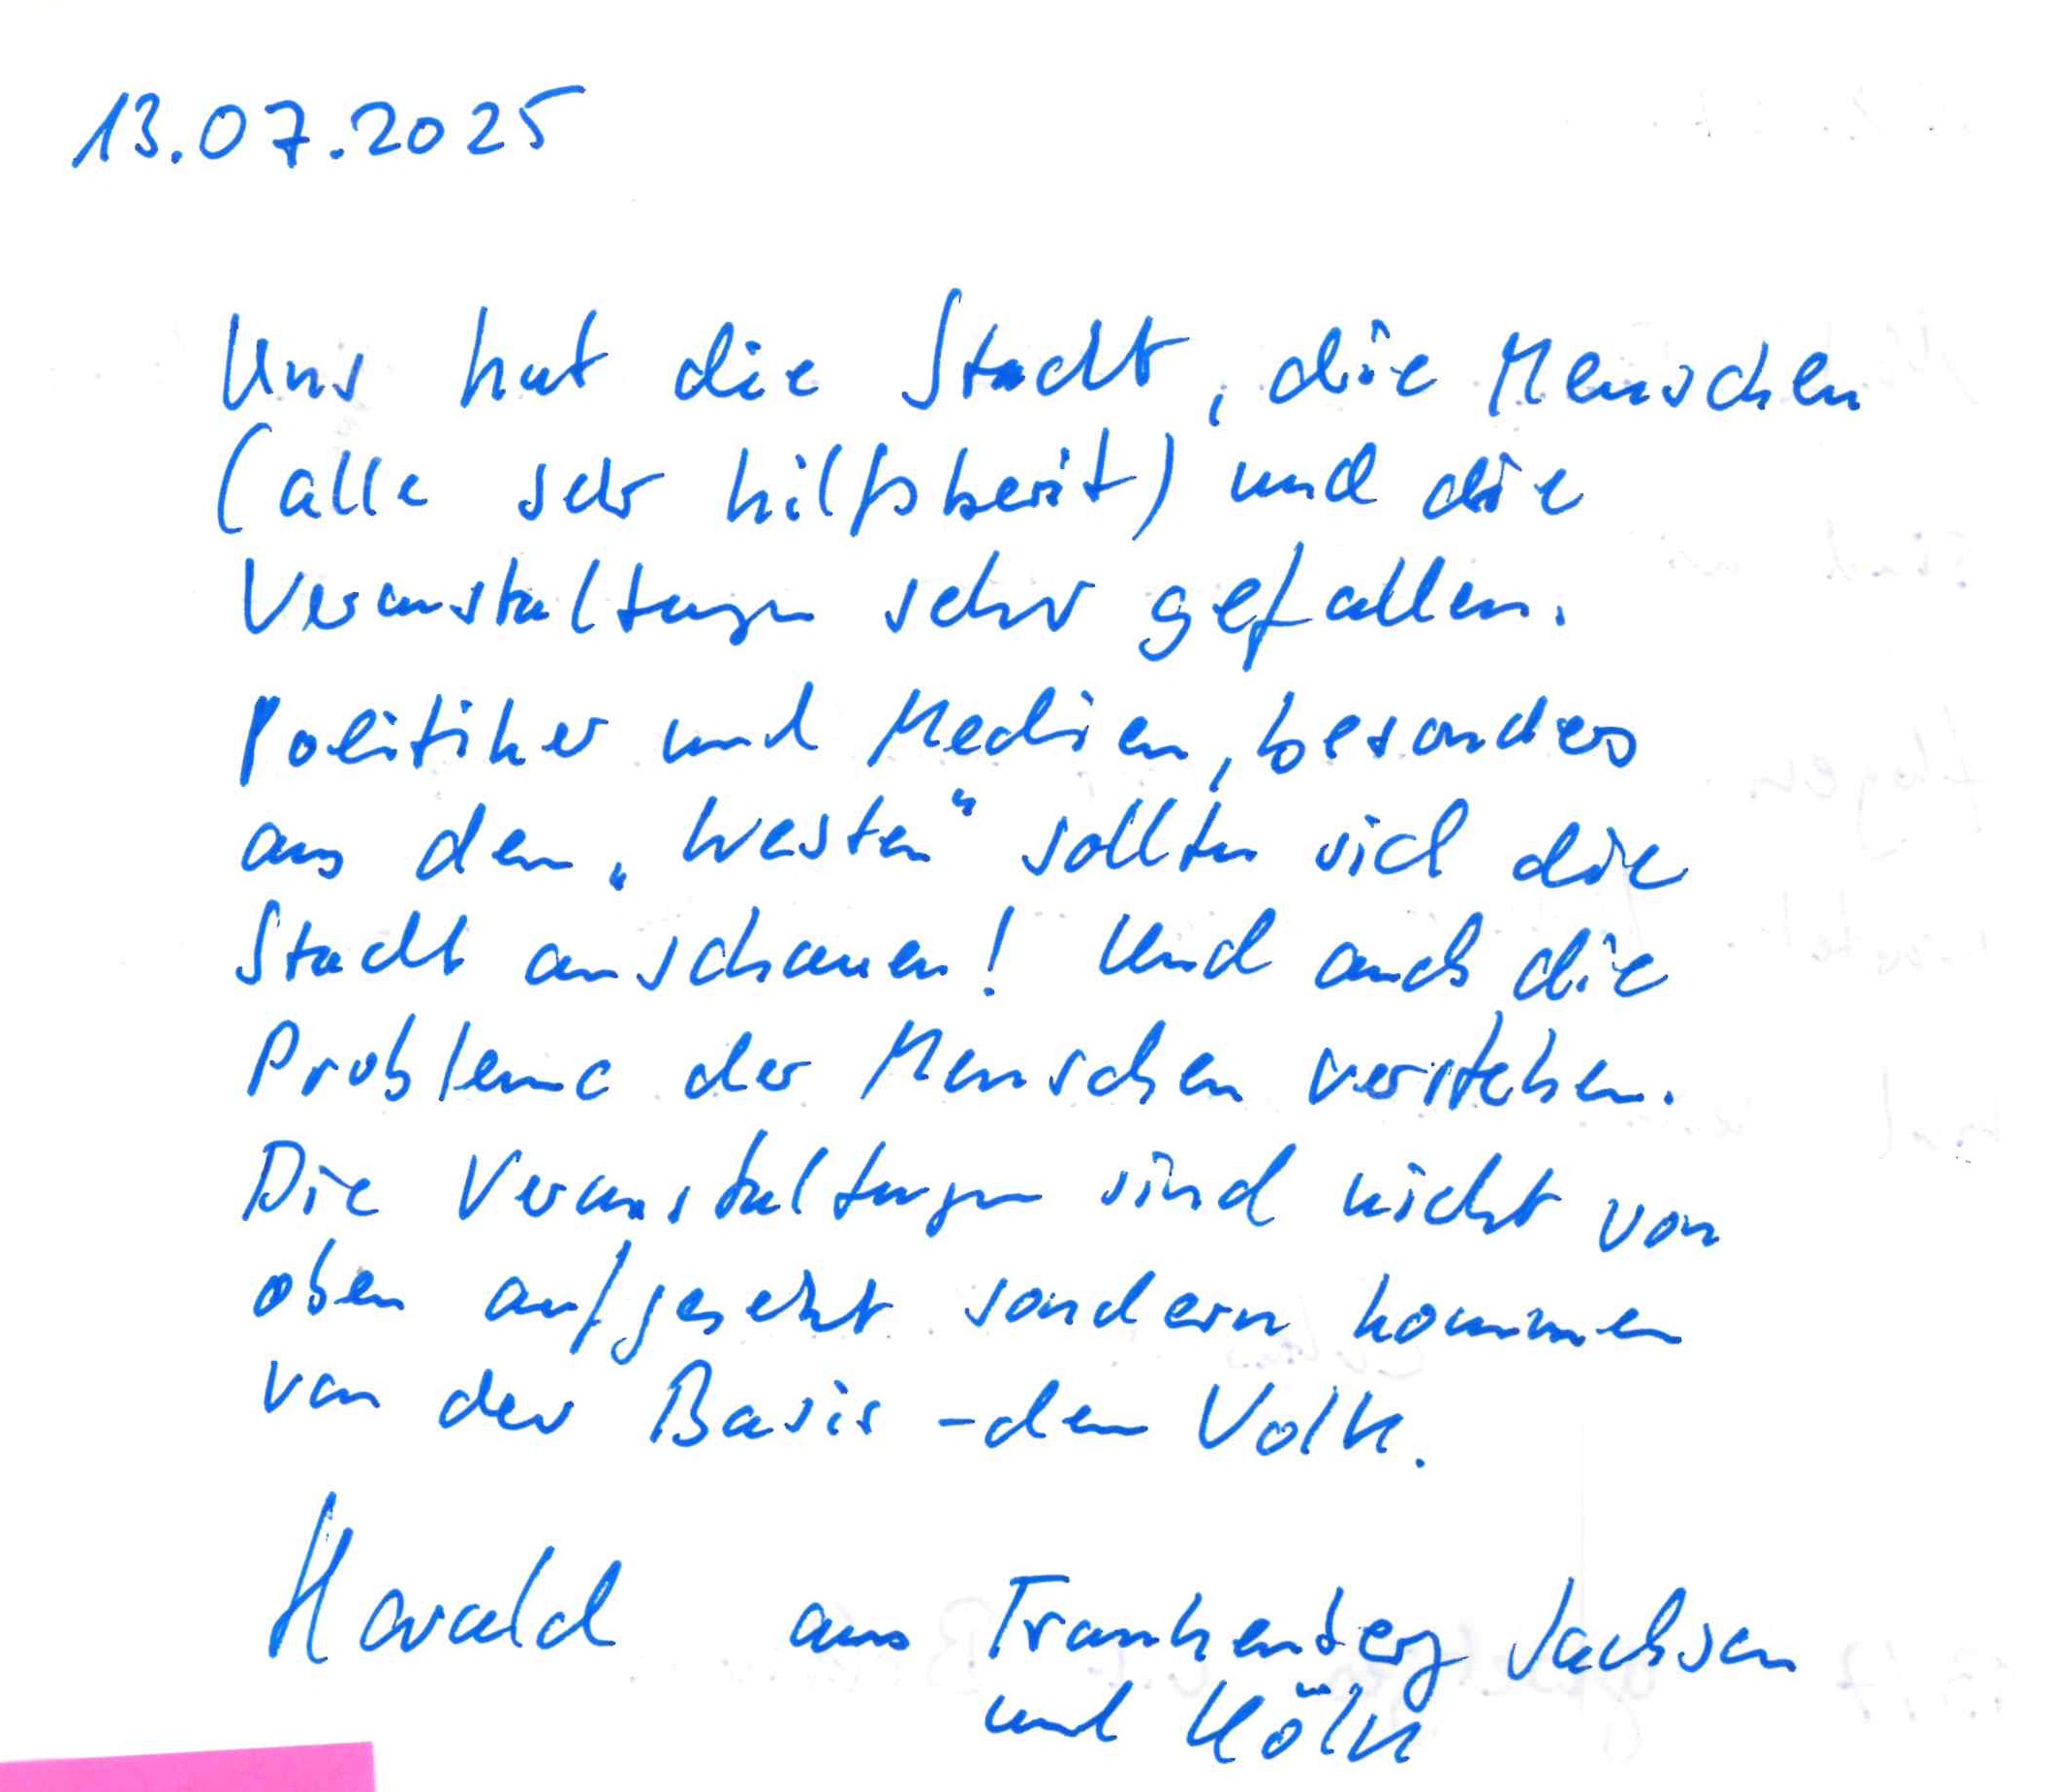 13.07.2025
Uns hat die Stadt, die Menschen
(alle sehr hilfsbereit) und die
Veranstaltungen sehr gefallen.
Politiker und Medien, besonders
aus dem „Westen“ sollten sich die
Stadt anschauen! Und auch die
Probleme der Menschen verstehen.
Die Veranstaltungen sind nicht von
oben aufgesetzt sondern kommen
von der Basis - dem Volk.
Harald aus Frankenberg Sachsen
und Köln